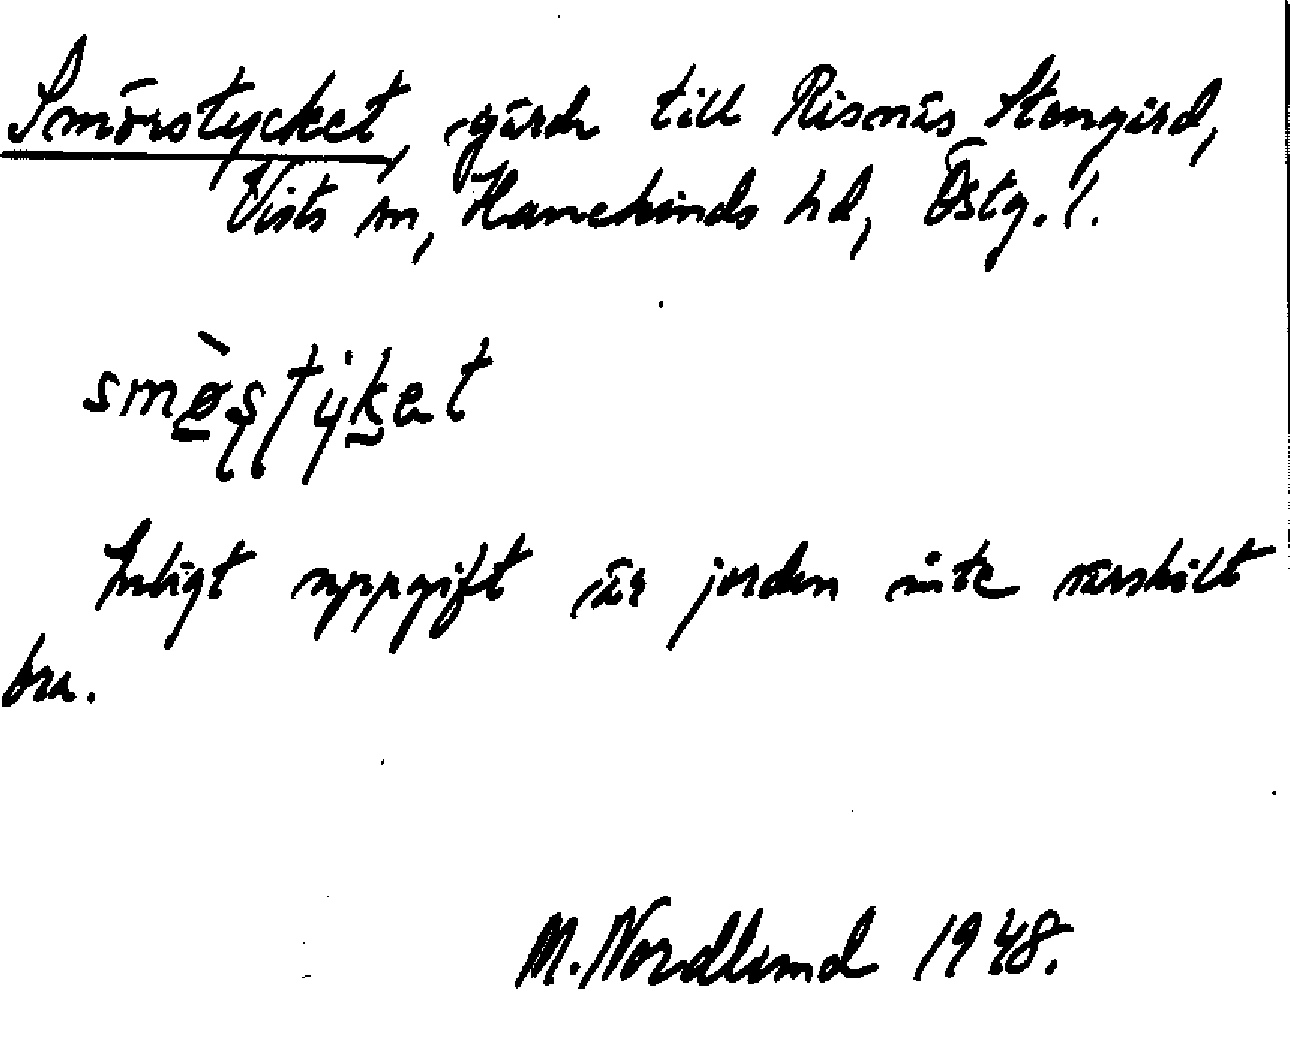 Smörstycket, gärde till Risnäs Stengård,
Vists sn, Hanekinds hd, Östg. l.
smø̀stykət
Enligt uppgift är jorden inte särskilt
bra.
M. Nordlund 1948.